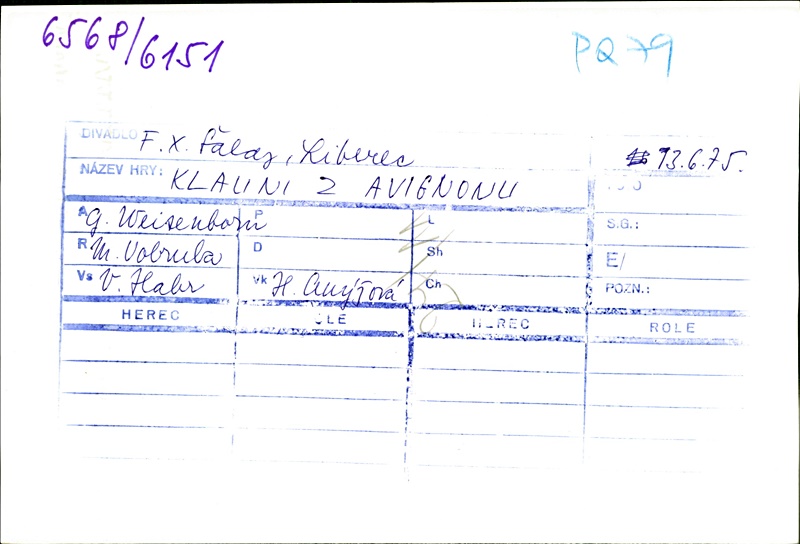 6568/6151
PQ 79
DIVADLO F. X. Šalda, Liberec 13.6.75.
NÁZEV HRY: KLAUNI Z AVIGNONU
A G. Weisenborn P L S.G.:
R M. Vobruba D Sh E/
Vs V. Habr Vk H. Anýžová Ch POZN.:
HEREC HEREC ROLE